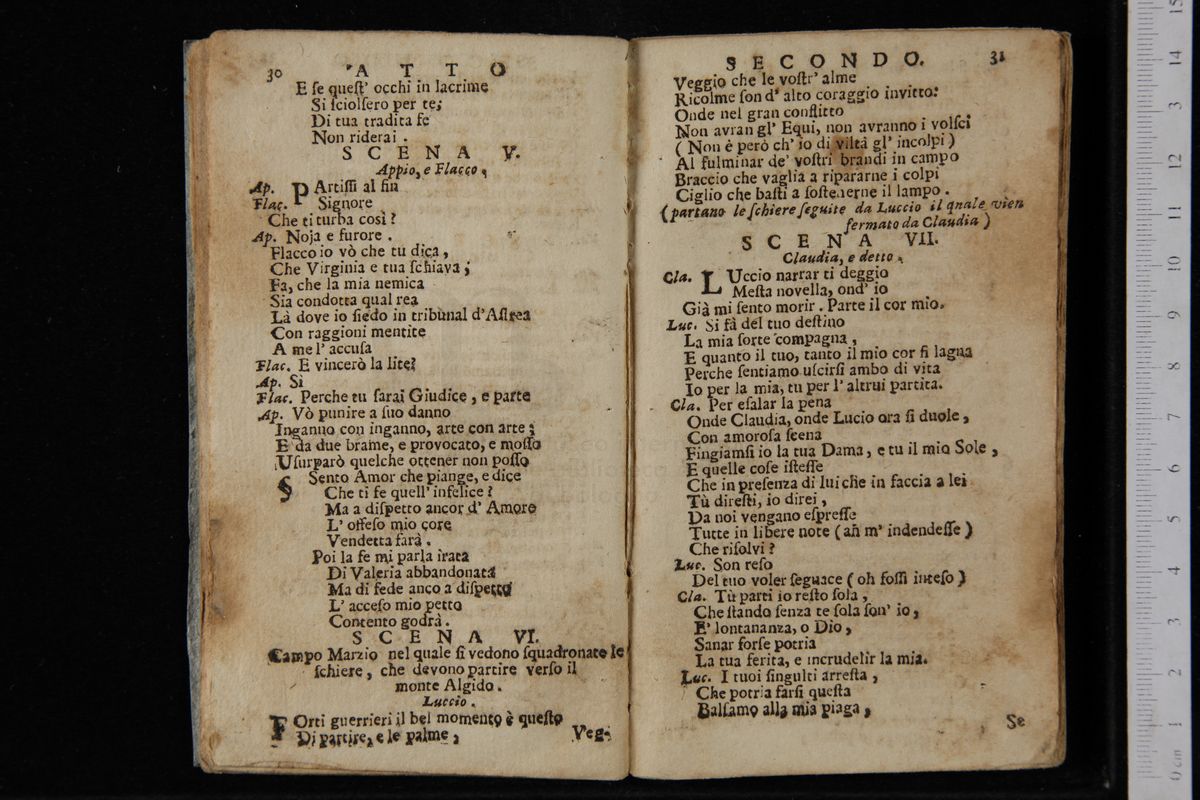 30 ATTO
E se queſt' occhi in lacrime
Si ſciolſero per te;
Di tua tradita fe
Non riderai.
SCENA V.
Appio, e Flacco.
Ap. PArtiſſi al fin
Flac. Signore
Che ti turba così?
Ap. Noja e furore.
Flacco io vò che tu dica,
Che Virginia e tua ſchiava;
Fa, che la mia nemica
Sia condotta qual rea
Là dove io ſiedo in tribunal d'Aſtrea
Con raggioni mentite
A me l' accuſa
Flac. E vincerò la lite?
Ap. Sì
Flac. Perche tu ſarai Giudice, e parte
Ap. Vò punire a ſuo danno
Inganno con inganno, arte con arte;
E da due brame, e provocato, e moſſo
Uſurparò quelche ottener non poſſo
§ Sento Amor che piange, e dice
Che ti fe quell' infelice?
Ma a diſpetto ancor d' Amore
L' offeſo mio core
Vendetta farà.
Poi la fe mi parla irata
Di Valeria abbandonata
Ma di fede anco a diſpetto
L' acceſo mio petto
Contento godrà.
SCENA VI.
Campo Marzio nel quale ſi vedono ſquadronate le
ſchiere, che devono partire verſo il
monte Algido.
Luccio.
FOrti guerrieri il bel momento è queſto
Di partire, e le palme,
Veg-
SECONDO. 31
Veggio che le voſtr' alme
Ricolme ſon d' alto coraggio invitto:
Onde nel gran conflitto
Non avran gl' Equi, non avranno i volſci
(Non è però ch' io di viltà gl' incolpi)
Al fulminar de' voſtri brandi in campo
Braccio che vaglia a ripararne i colpi
Ciglio che baſti a ſoſtenerne il lampo.
(partano le ſchiere ſeguite da Luccio il qnale vien
fermato da Claudia)
SCENA VII.
Claudia, e detto.
Cla. LUccio narrar ti deggio
Meſta novella, ond' io
Già mi ſento morir. Parte il cor mio.
Luc. Si fà del tuo deſtino
La mia ſorte compagna,
E quanto il tuo, tanto il mio cor ſi lagna
Perche ſentiamo uſcirſi ambo di vita
Io per la mia, tu per l' altrui partita.
Cla. Per eſalar la pena
Onde Claudia, onde Lucio ora ſi duole,
Con amoroſa ſcena
Fingiamſi io la tua Dama, e tu il mio Sole,
E quelle coſe iſteſſe
Che in preſenza di lui che in faccia a lei
Tù direſti, io direi,
Da noi vengano eſpreſſe
Tutte in libere note (añ m' indendeſſe)
Che riſolvi?
Luc. Son reſo
Del tuo voler ſeguace (oh foſſi inteſo)
Cla. Tù parti io reſto ſola,
Che ſtando ſenza te ſola ſon' io,
E' lontananza, o Dio,
Sanar forſe potria
La tua ferita, e incrudelir la mia.
Luc. I tuoi ſingulti arreſta,
Che potria farſi queſta
Balſamo alla mia piaga,
Se